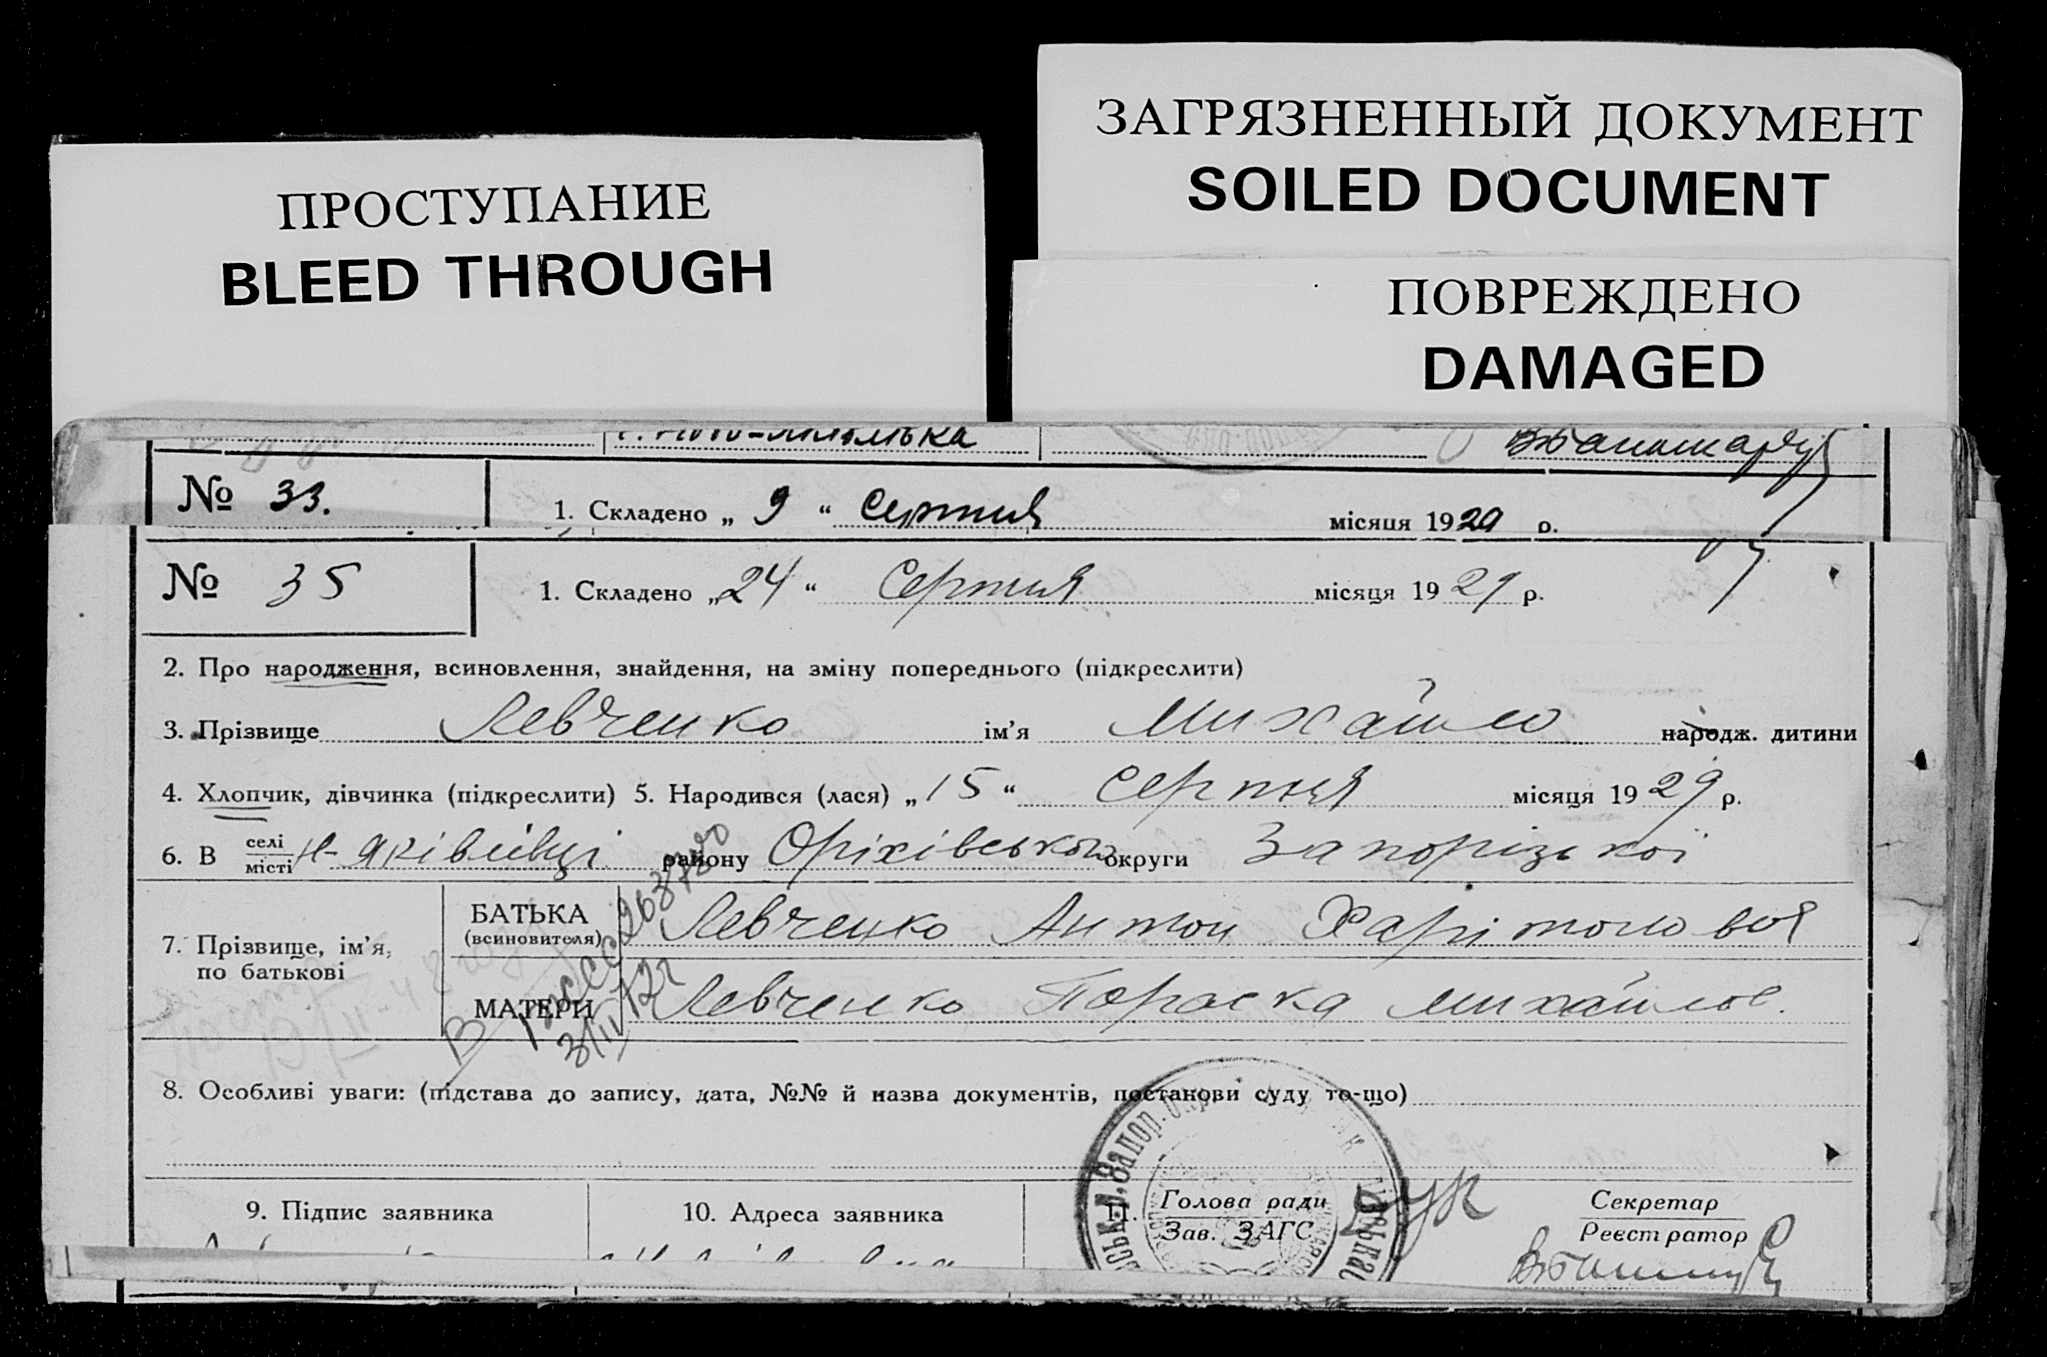 ЗАГРЯЗНЕННЫЙ ДОКУМЕНТ
SOILED DOCUMENT
ПРОСТУПАНИЕ
BLEED THROUGH
ПОВРЕЖДЕНО
DAMAGED
№ 33. 1. Складено „ 9 “ Серпня місяця 1929 р.
№ 35 1. Складено „24“ Серпня місяця 1929 р.
2. Про народження, всиновлення, знайдення, на зміну попереднього (підкреслити)
3. Прізвище Левченко ім'я Михайло народж. дитини
4. Хлопчик, дівчинка (підкреслити) 5. Народився (лася) „15“ Серпня місяця 1929 р.
6. В селі
місті Н-Яківлівці району Оріхівського округи Запорізької
7. Прізвище, ім'я,
по батькові
БАТЬКА
(всиновителя)
Левченко Антон Харітонович
МАТЕРИ Левченко Параска Михайлов.
8. Особливі уваги: (підстава до запису, дата, №№ й назва документів, постанови суду то-що)
9. Підпис заявника
10. Адреса заявника
11. Голова ради
Зав. ЗАГС
Секретар
Реєстратор
Запор. Окр.